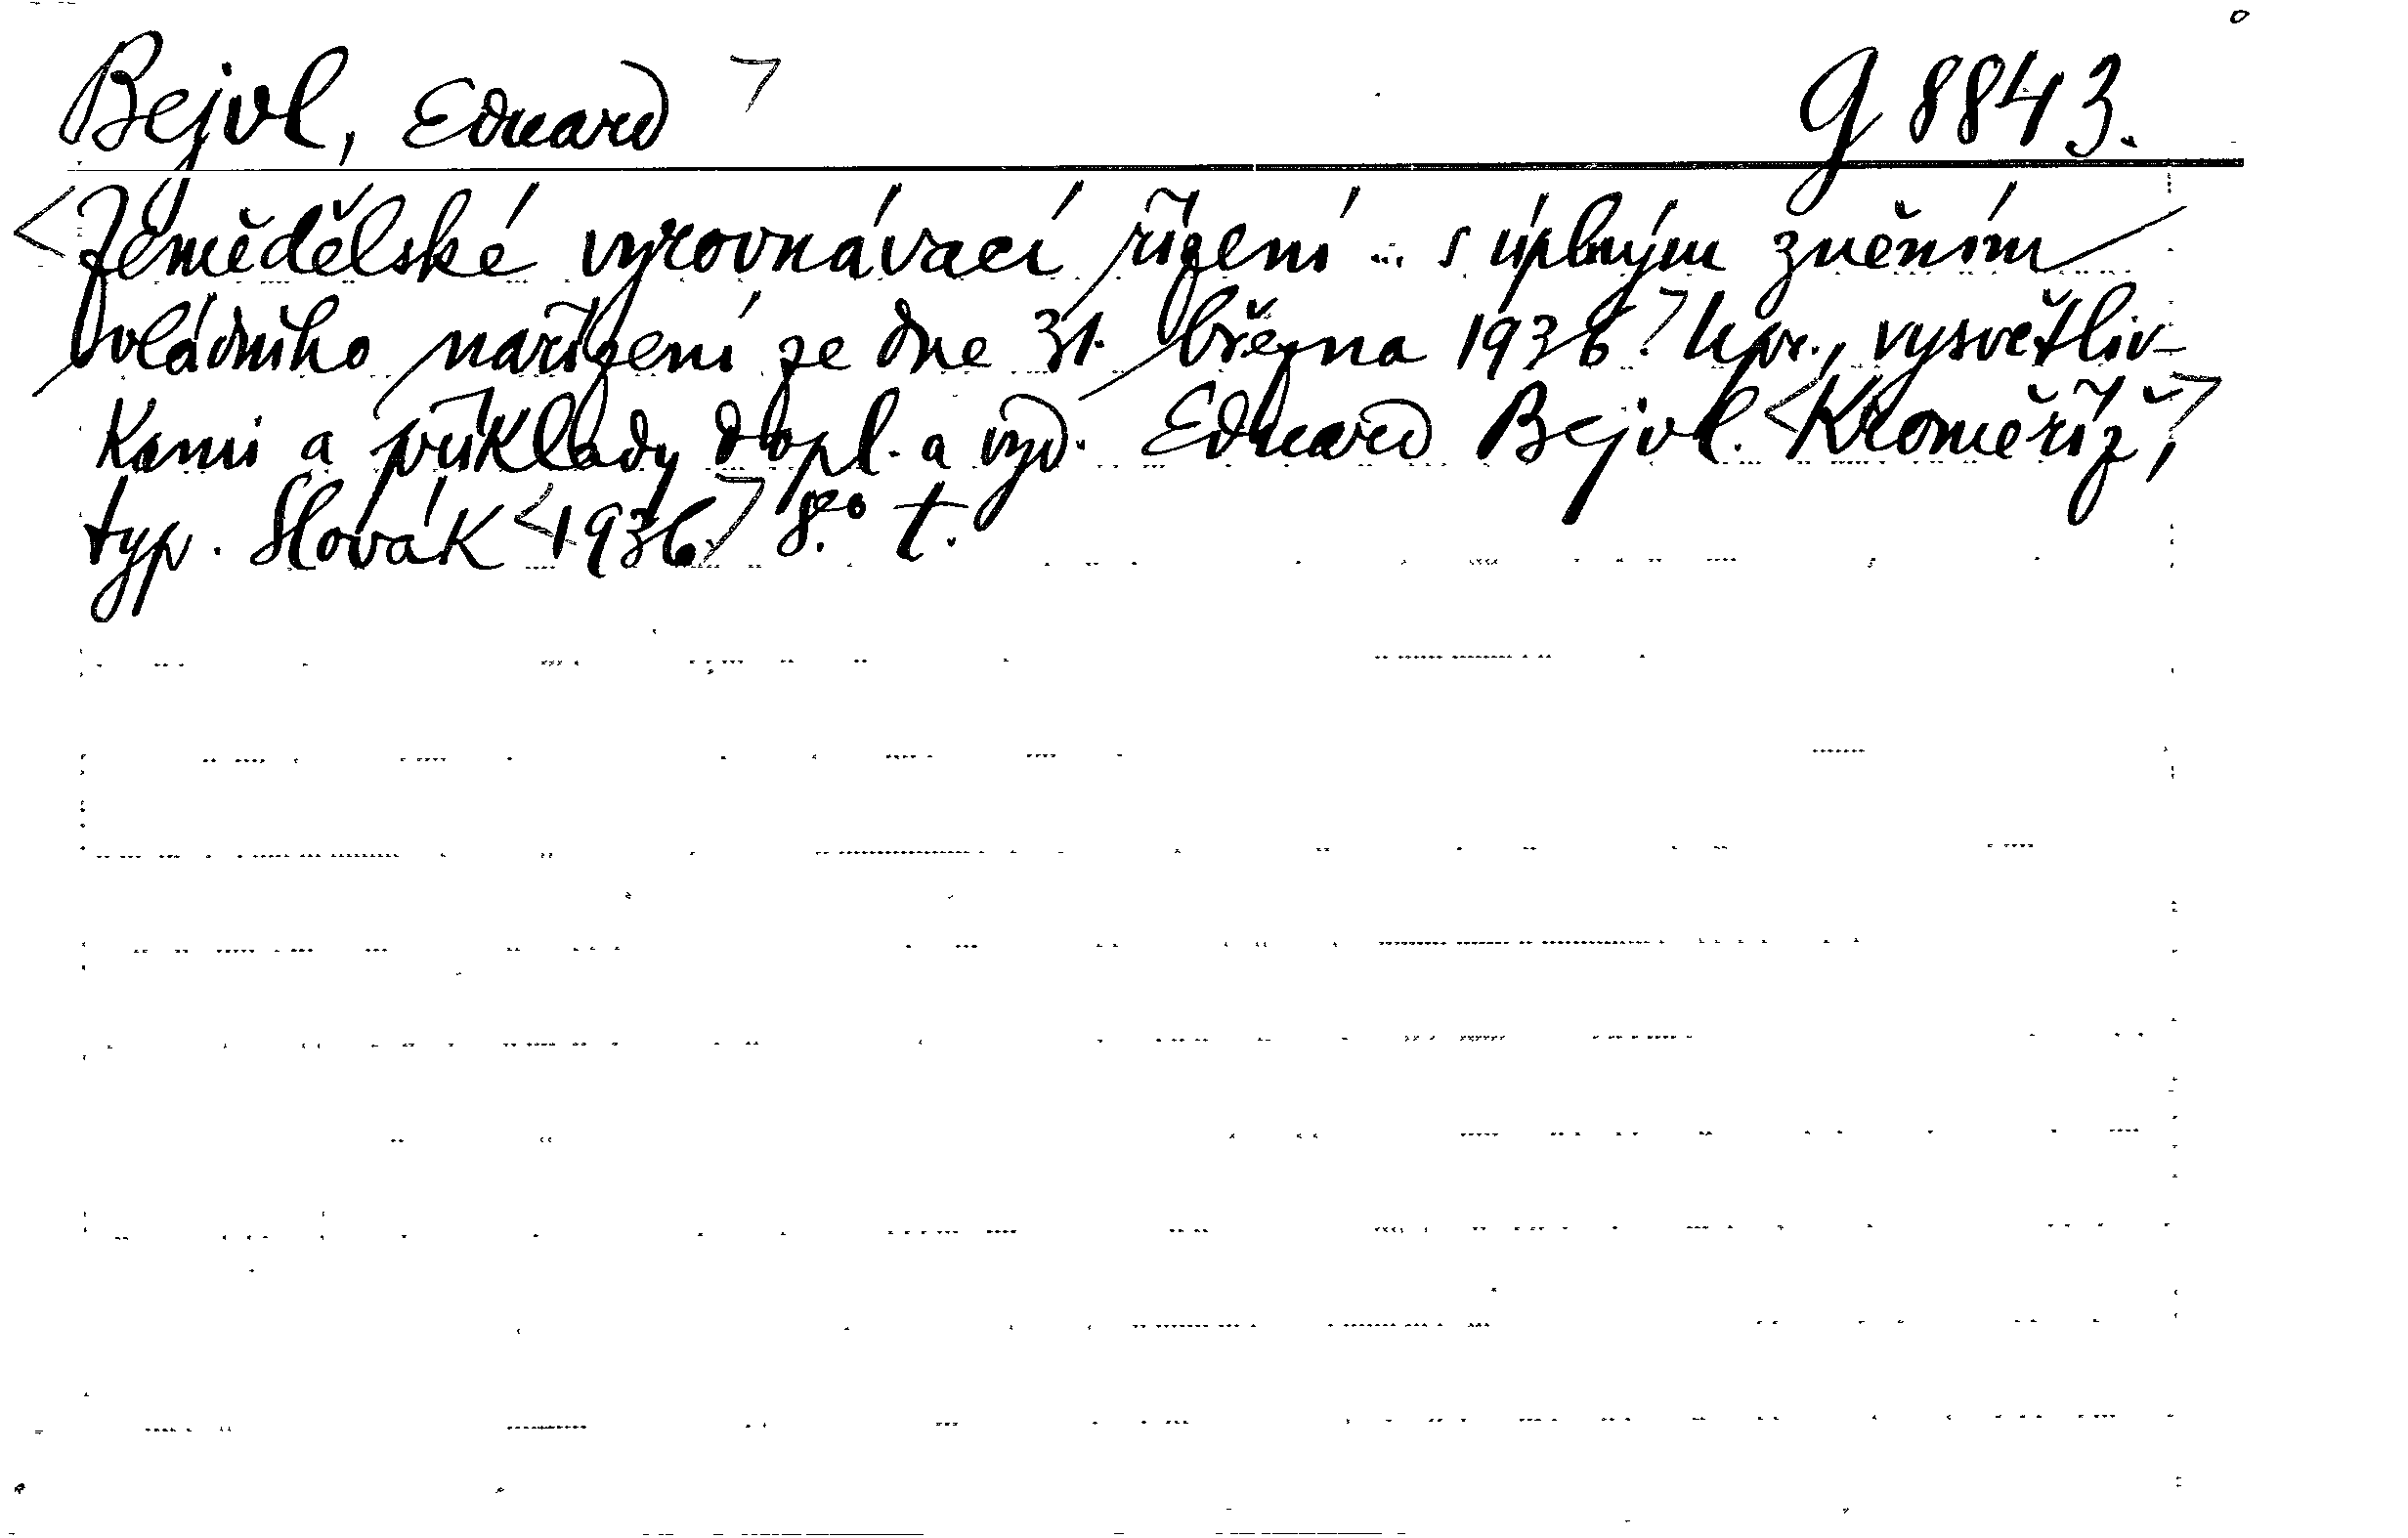 Bejvl, Eduard > G 8843.
<Zemědělské vyrovnávací řízení ... s úplným zněním
vládního nařízení ze dne 31. března 1936.> Upr., vysvětliv-
kami a příklady dopl. a vyd. Eduard Bejvl. <Kroměříž,>
typ. Slovák <1936.> 8.° t.